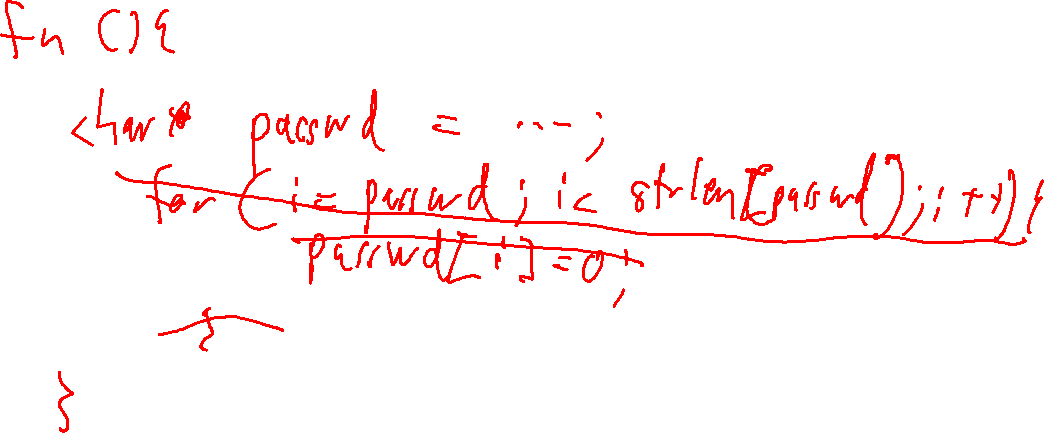 fn (){
char* passwd = ...;
for (i= passwd; i< strlen(passwd);i++){
passwd[i]=0;
}
}